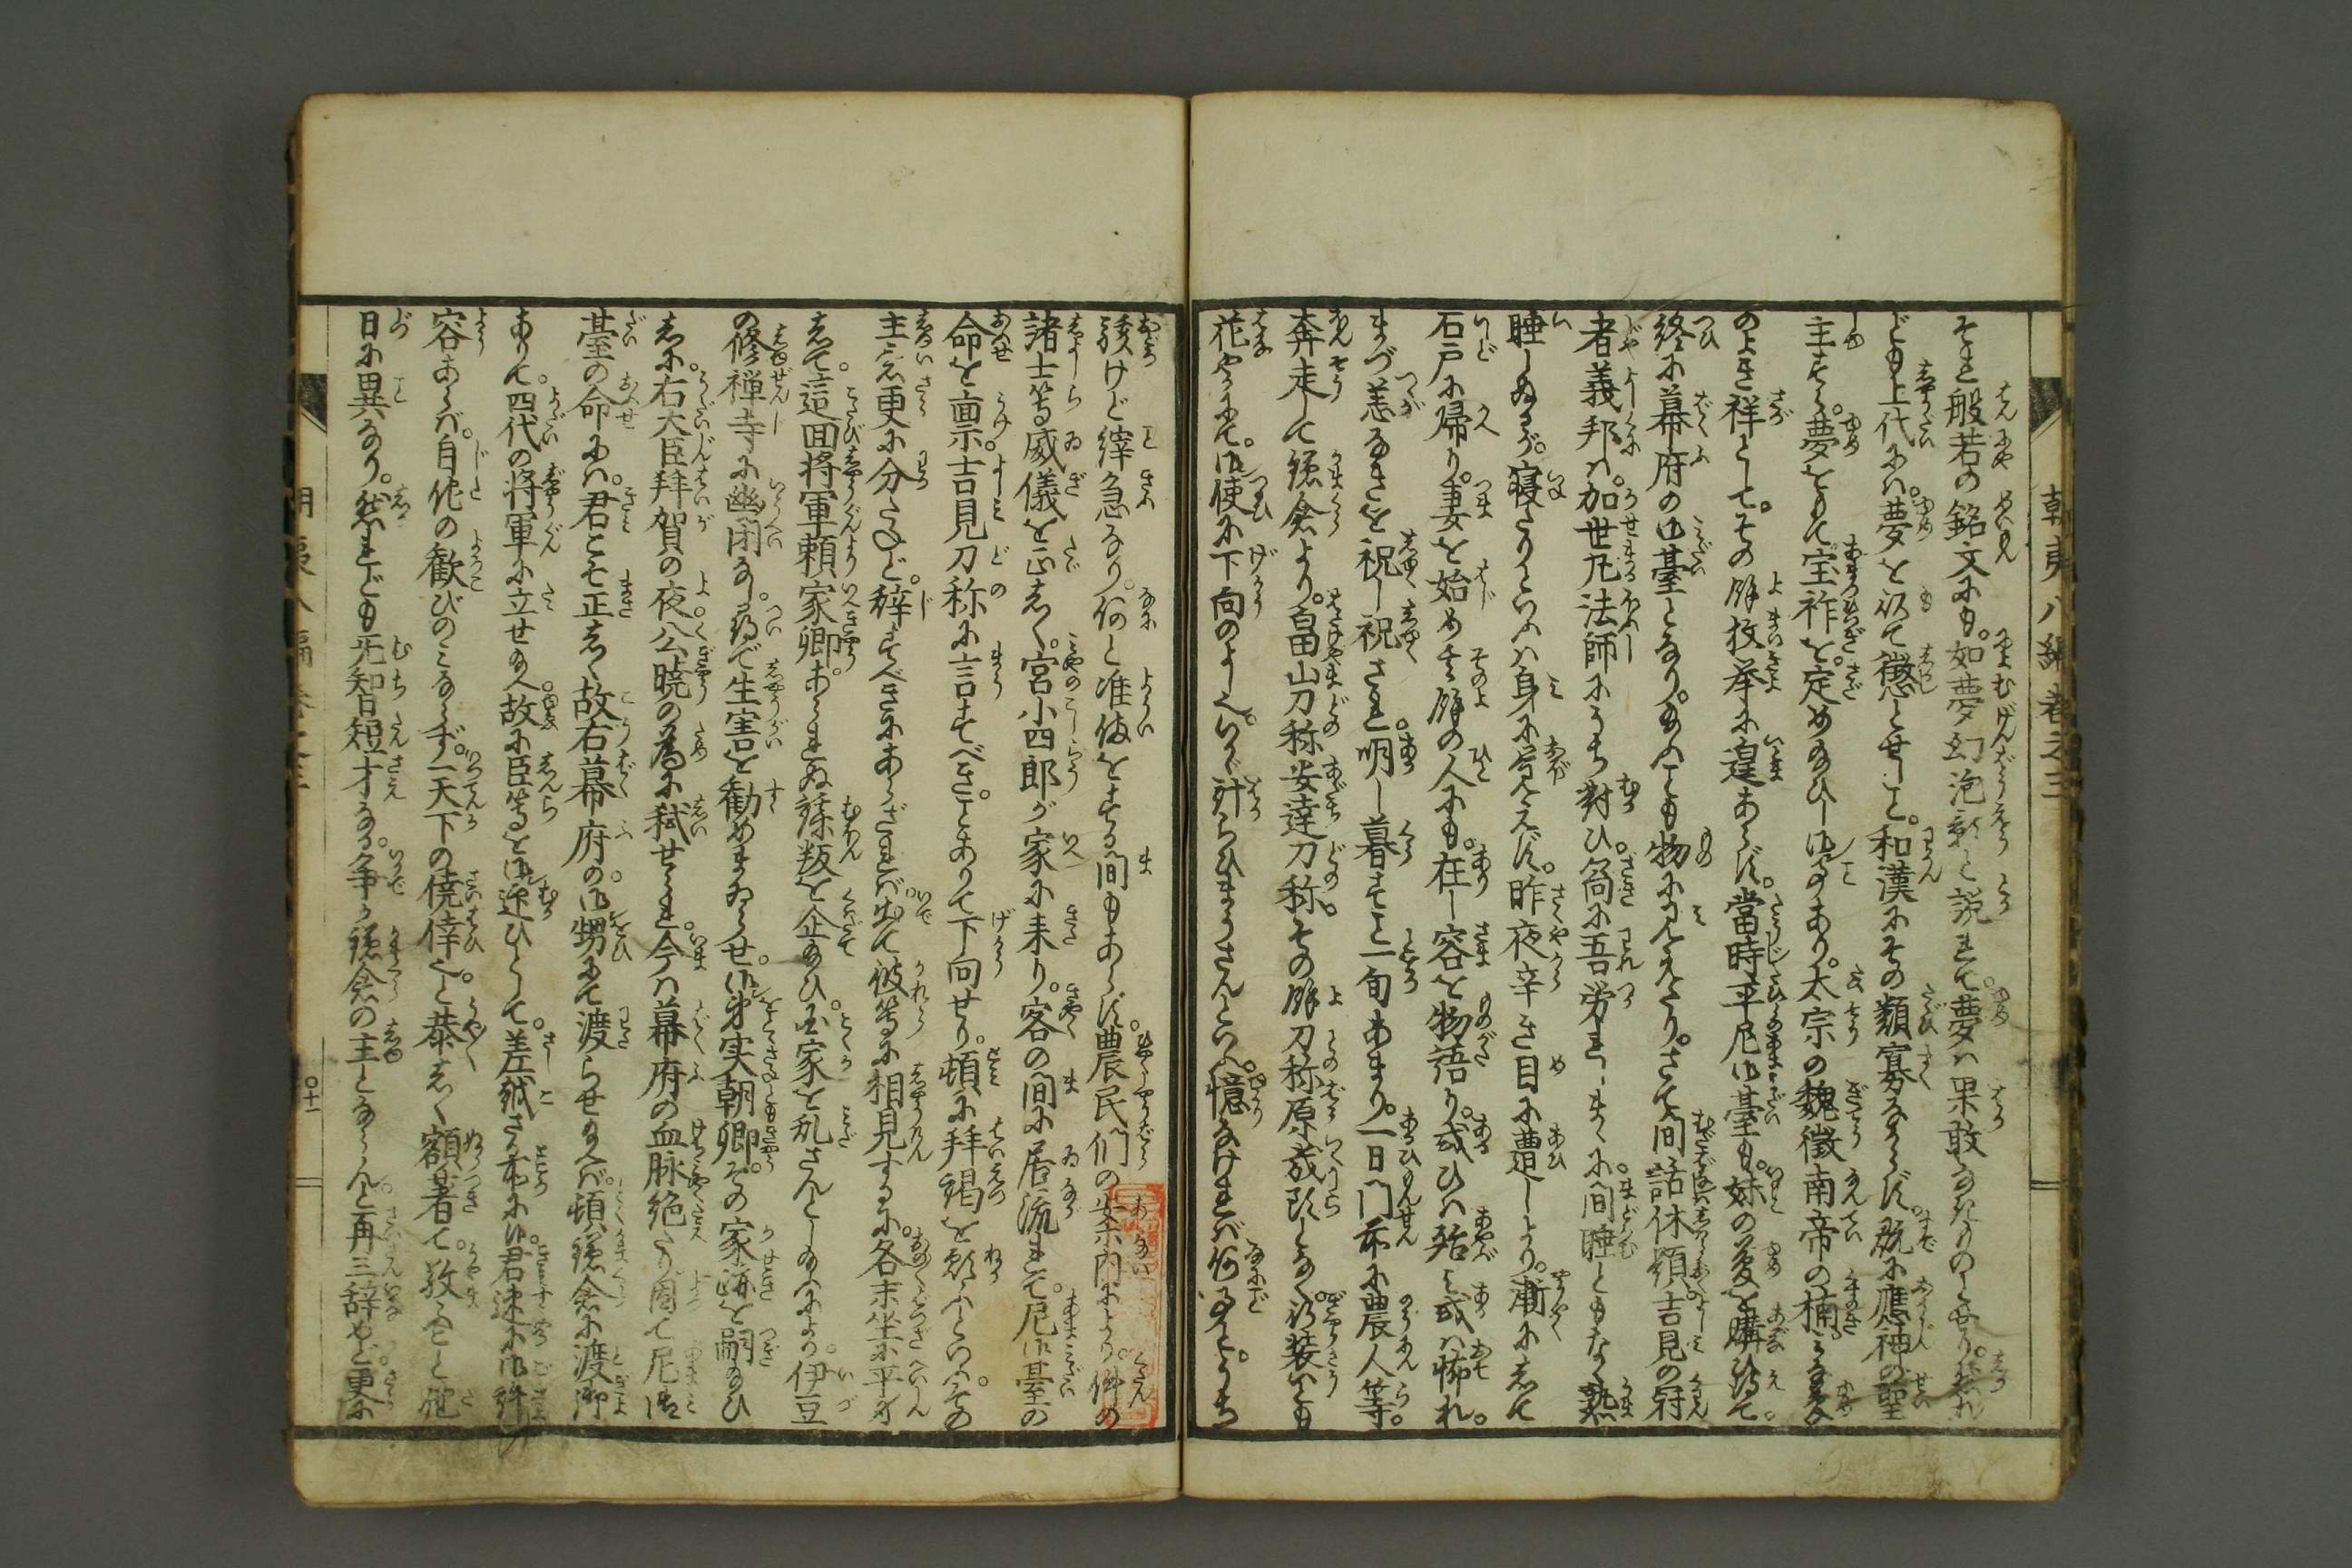 朝夷八編巻之三
それ般若の銘文にも。如夢幻泡影と説れて。夢は果敢なきものとせり。されれ
ども上代には。夢を祝て徴とせしこと。和漢にその類寡なからず。既に應神の聖
主すら。夢をもて宝祚を。定め給ひし御ことあり。太宗の魏徴南帝の楠
のよき祥として。その餘枚挙に遑あらず。當時平尼御臺も。妹の夢を購ひ得て。
終に幕府の御臺となり。給ふとも物に見えたり。さて間話休題。吉見の冠
者義邦は。加世丸法師にうち對ひ。向に吾労れしまゝに。間睡ともなく熟
睡しぬるが。寝たりといふは身に覚えず。昨夜辛き目に遭しより。漸にして
石戸に帰り。妻を始め其餘の人にも。在し容を物語り。或ひは殆み或は怖れ。
まづ恙なきを祝し祝され。明し暮すこと一旬あまり。一日門前に農人等。
奔走して鎌倉より。畠山刀称安達刀称。その餘刀称原幾頭となく。行装いとも
花やかにて。御使に下向のよし也。いかゞ計らひまうさんといふ。憶なければ何事と。うち
駭けど縡急なり。何と准備をする間もあらず。農民們の案内により。件の
諸士等威儀を正しく。宮小四郎が家に来り。客の間に居流れて。尼御臺の
命を稟。吉見刀称に言すべき。ことありて下向せり。頓に拝謁を願ふといふ。その
主意更に分たねど。辞すべきにあらざれば。出て彼等に相見するに。各末坐に平身
して。這回将軍頼家卿。あられぬ謀叛を企給ひ。國家を乱さんとし給ふにより。伊豆
の修禅寺に幽閉なし。尋で生害を勧めまゐらせ。御弟実朝卿。その家跡を嗣給ひ
しに。右大臣拝賀の夜。公暁の為に弑せられ。今は幕府の血脉絶たり。因て尼御
臺の命には。君こそ正しく故右幕府の。御甥にて渡らせ給へば。頓鎌倉に渡御
ありて。四代の将軍に立せ給へ。故に臣等を御迎ひとして。差越さる所に候。君速に御許
容あらば。自他の歓びのみならず。一天下の僥倖也と。恭しく額着て。敬ふこと佗
日に異なり。然れども无智短才なる。争か鎌倉の主とならんと。再三辞めど更に
十一